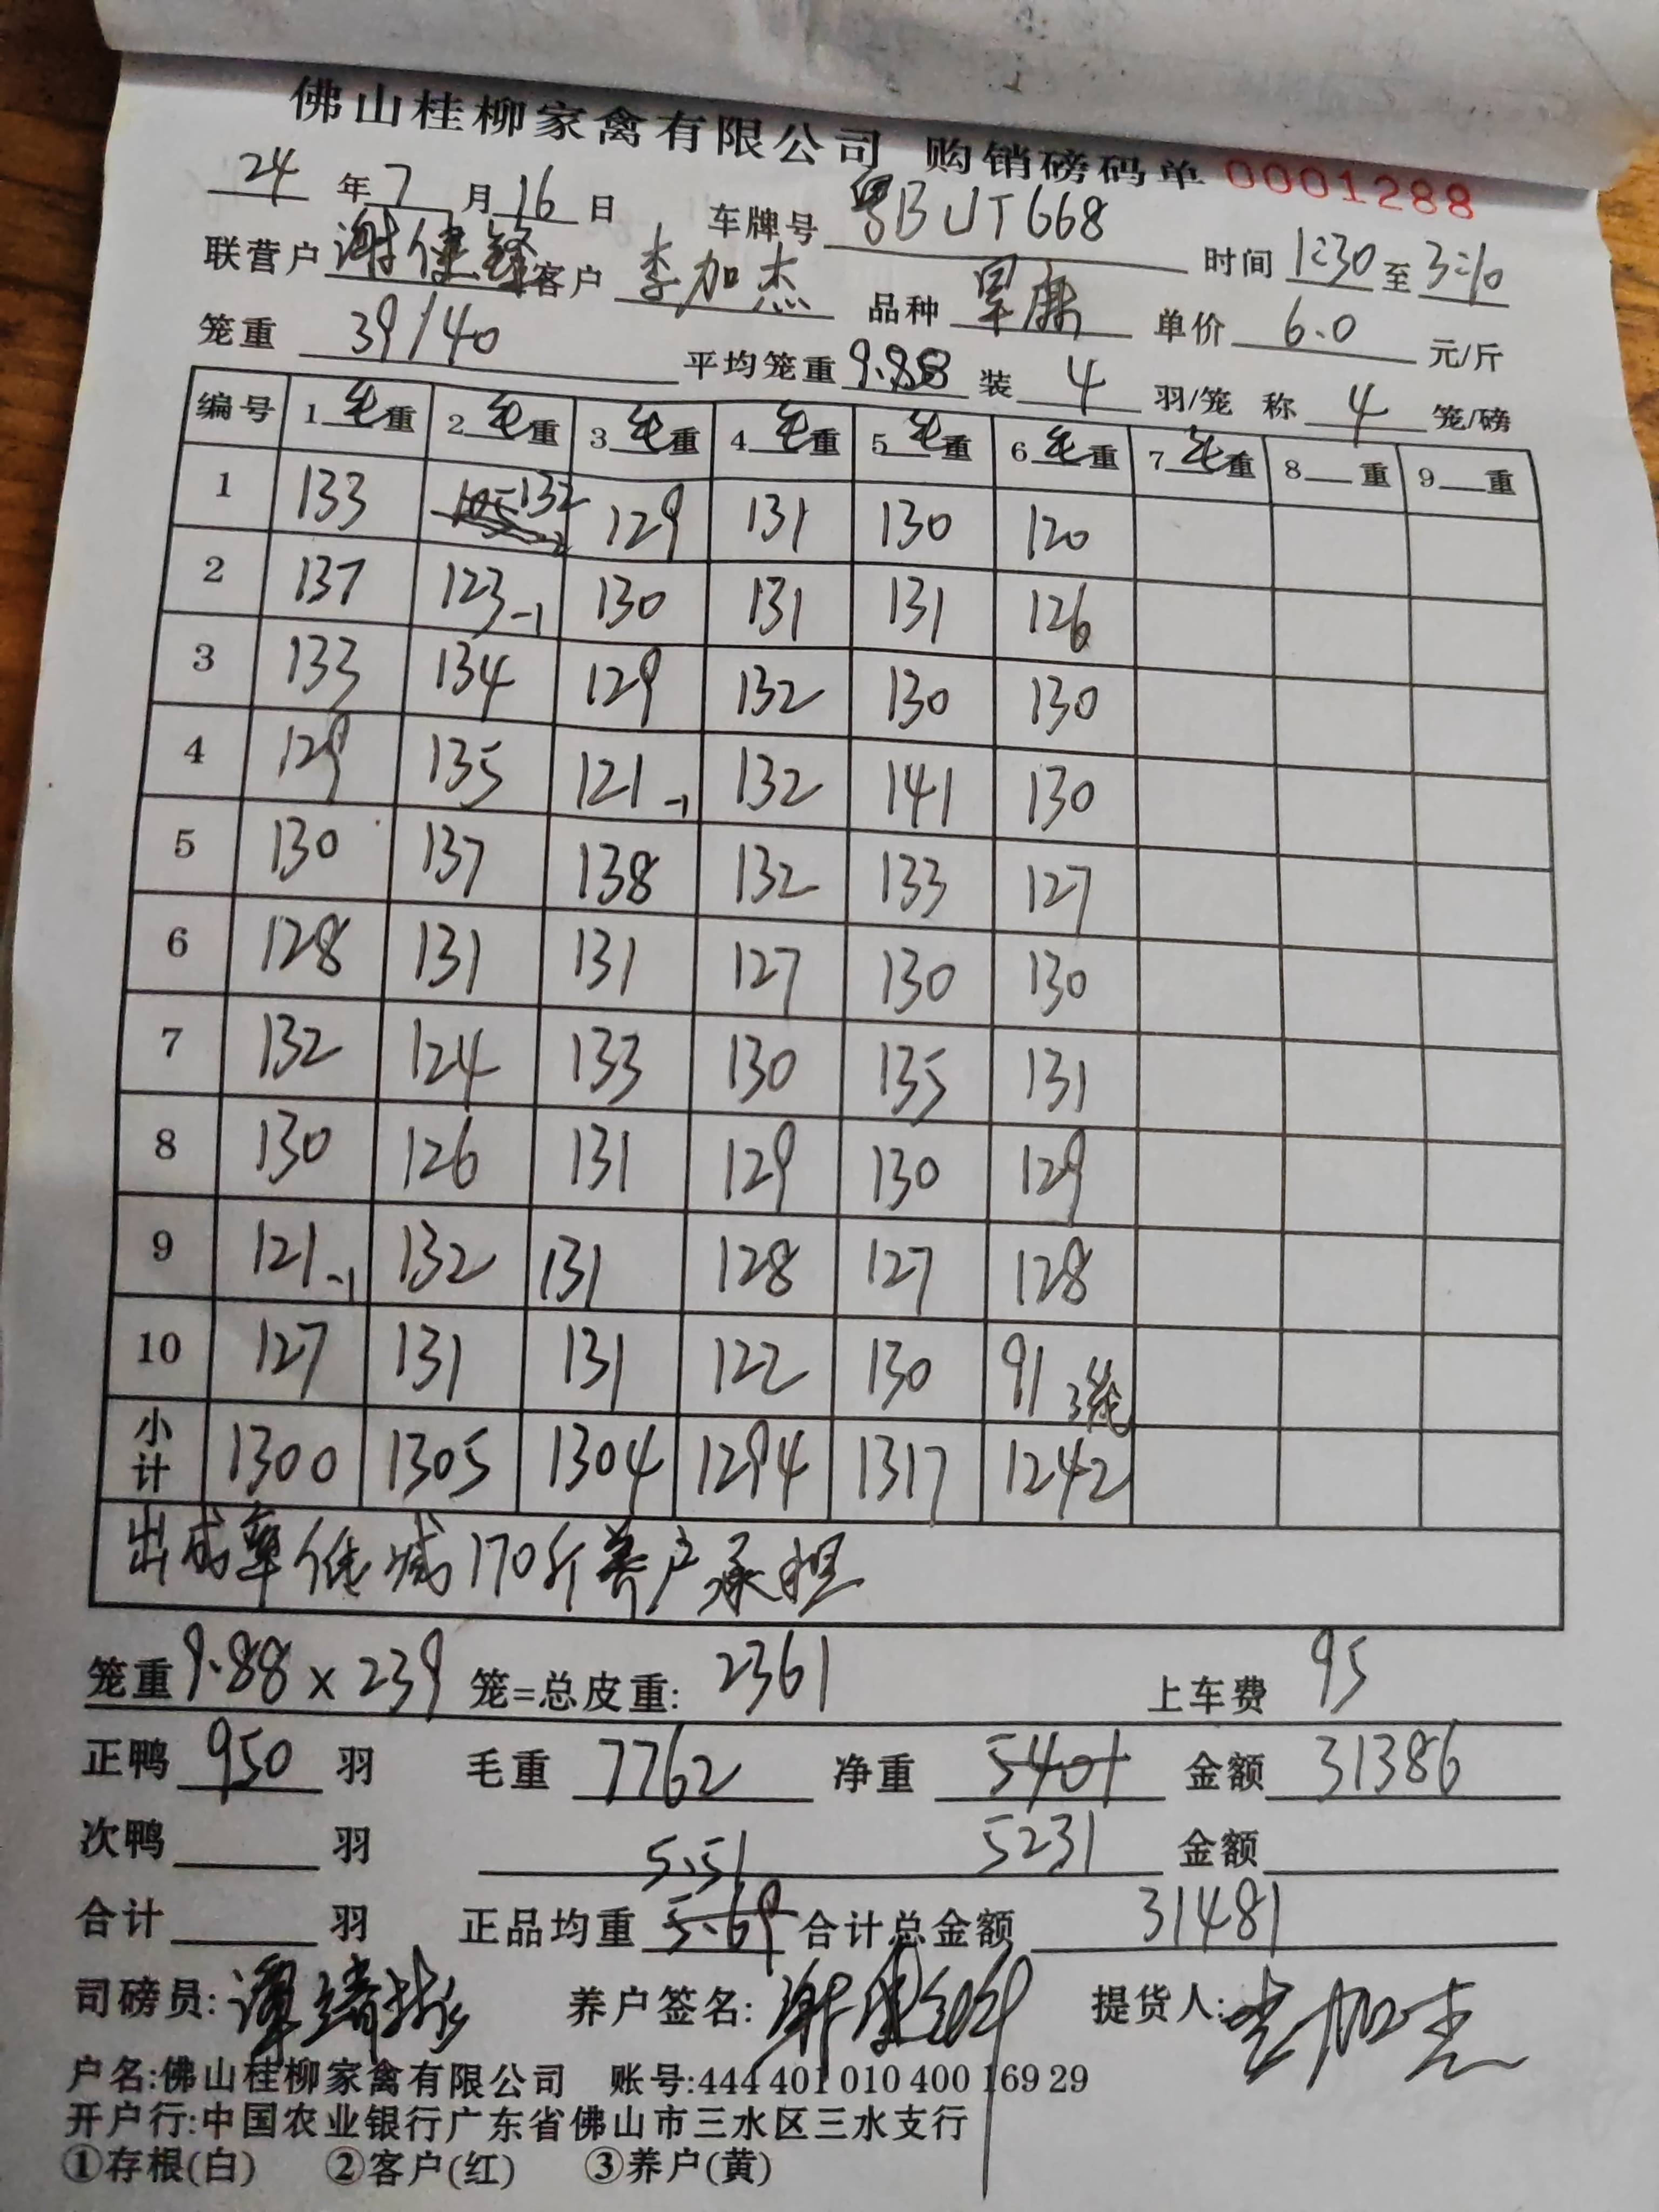 佛山桂柳家禽有限公司 购销磅码单 0001288
24 年 7 月 16 日 车牌号 粤BUT668 时间 1:30 至 3:10
联营户 谢健锋 客户 李加杰 品种 单价 6.0 元/斤
笼重 39/40 平均笼重 9.88 装 4 羽/笼 称 4 笼/磅
编号 1 毛重 2 毛重 3 毛重 4 毛重 5 毛重 6 毛重 7 毛重 8 重 9 重
1 133 132 129 131 130 120
2 137 123-1 130 131 131 126
3 133 134 129 132 130 130
4 129 135 121-1 132 141 130
5 130 137 138 132 133 127
6 128 131 131 127 130 130
7 132 124 133 130 135 131
8 130 126 131 129 130 129
9 121-1 132 131 128 127 128
10 127 131 131 122 130 91 3笼
小计 1300 1305 1304 1294 1317 1242
出成率低减170斤养户承担
笼重 9.88 × 239 笼=总皮重: 2361 上车费 95
正鸭 950 羽 毛重 7762 净重 5401 金额 31386
次鸭 羽 5.51 5231 金额
合计 羽 正品均重 5.69 合计总金额 31481
司磅员: 养户签名: 提货人: 李加杰
户名:佛山桂柳家禽有限公司 账号:444 401 010 400 169 29
开户行:中国农业银行广东省佛山市三水区三水支行
①存根(白) ②客户(红) ③养户(黄)